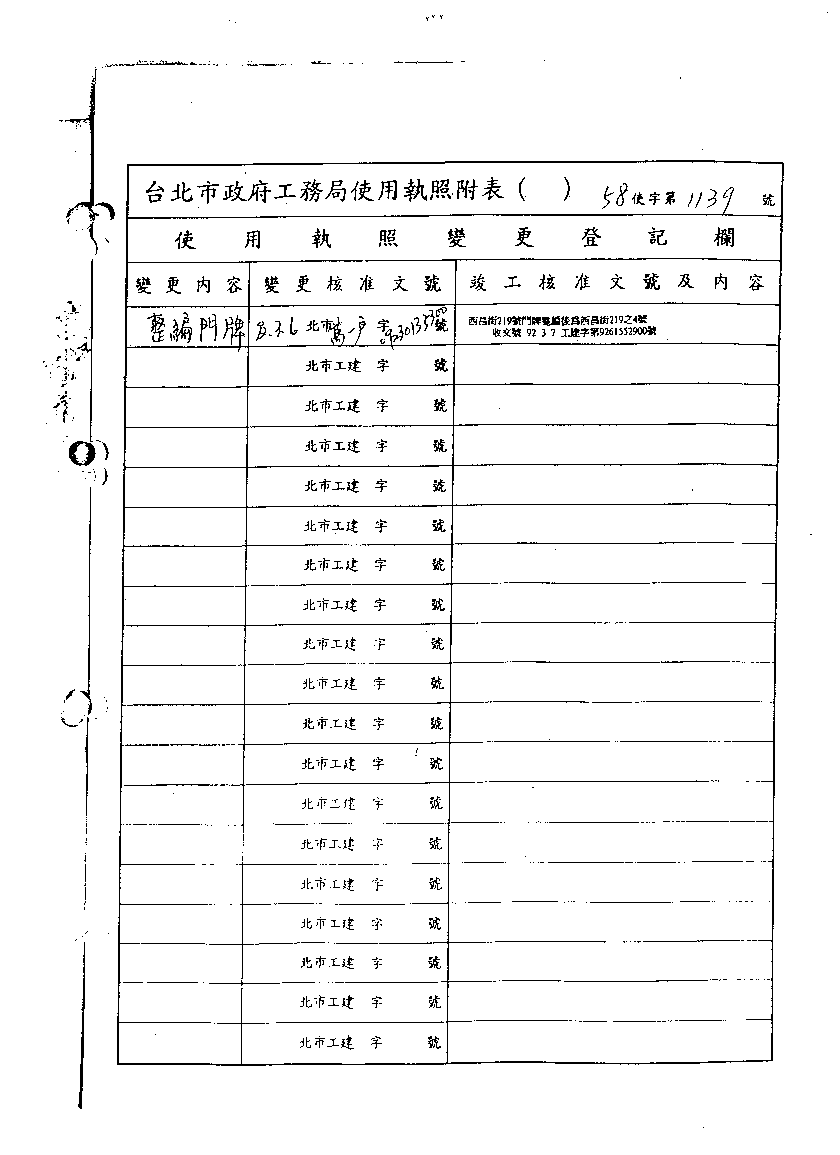 台北市政府工務局使用執照附表（　） 58使字第1139號
使用執照變更登記欄
變更內容 變更核准文號 竣工核准文號及內容
整編門牌 北市 字 號 西昌街219號門牌整編後為西昌街219之4號
收文號 92 3 7 工建字第9261552900號
北市工建 字 號
北市工建 字 號
北市工建 字 號
北市工建 字 號
北市工建 字 號
北市工建 字 號
北市工建 字 號
北市工建 字 號
北市工建 字 號
北市工建 字 號
北市工建 字 號
北市工建 字 號
北市工建 字 號
北市工建 字 號
北市工建 字 號
北市工建 字 號
北市工建 字 號
北市工建 字 號